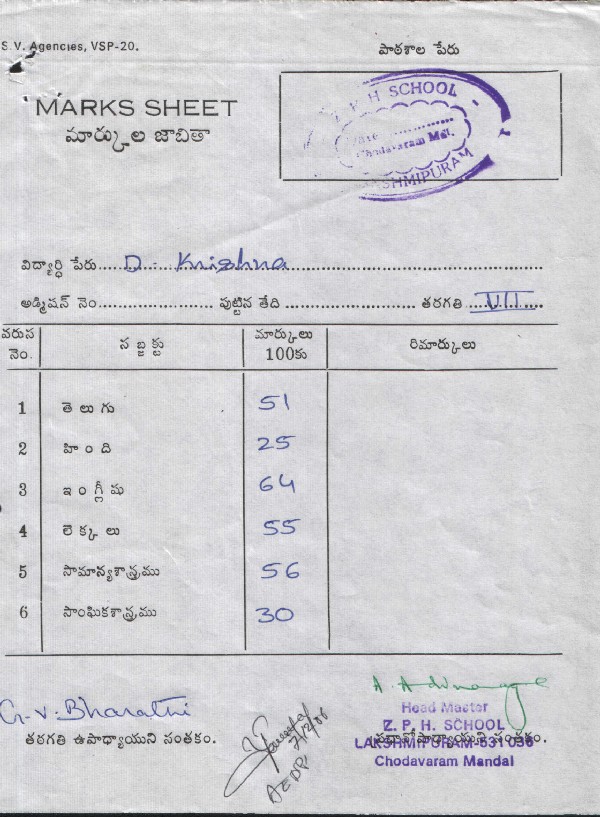 S.V. Agencies, VSP-20.
పాఠశాల పేరు
MARKS SHEET
మార్కుల జాబితా
Z. P. H SCHOOL
Chodavaram Mdl.
LAKSHMIPURAM
విద్యార్థి పేరు D. Krishna
అడ్మిషన్ నెం. పుట్టిన తేది తరగతి VII
వరుస నెం. సబ్జక్టు మార్కులు 100కు రిమార్కులు
1 తెలుగు 51
2 హింది 25
3 ఇంగ్లీషు 64
4 లెక్కలు 55
5 సామాన్యశాస్త్రము 56
6 సాంఘికశాస్త్రము 30
G.V. Bharathi
తరగతి ఉపాధ్యాయుని సంతకం.
Head Master
Z. P. H. SCHOOL
LAKSHMIPURAM-531 036
ప్రధానోపాధ్యాయుని సంతకం.
Chodavaram Mandal